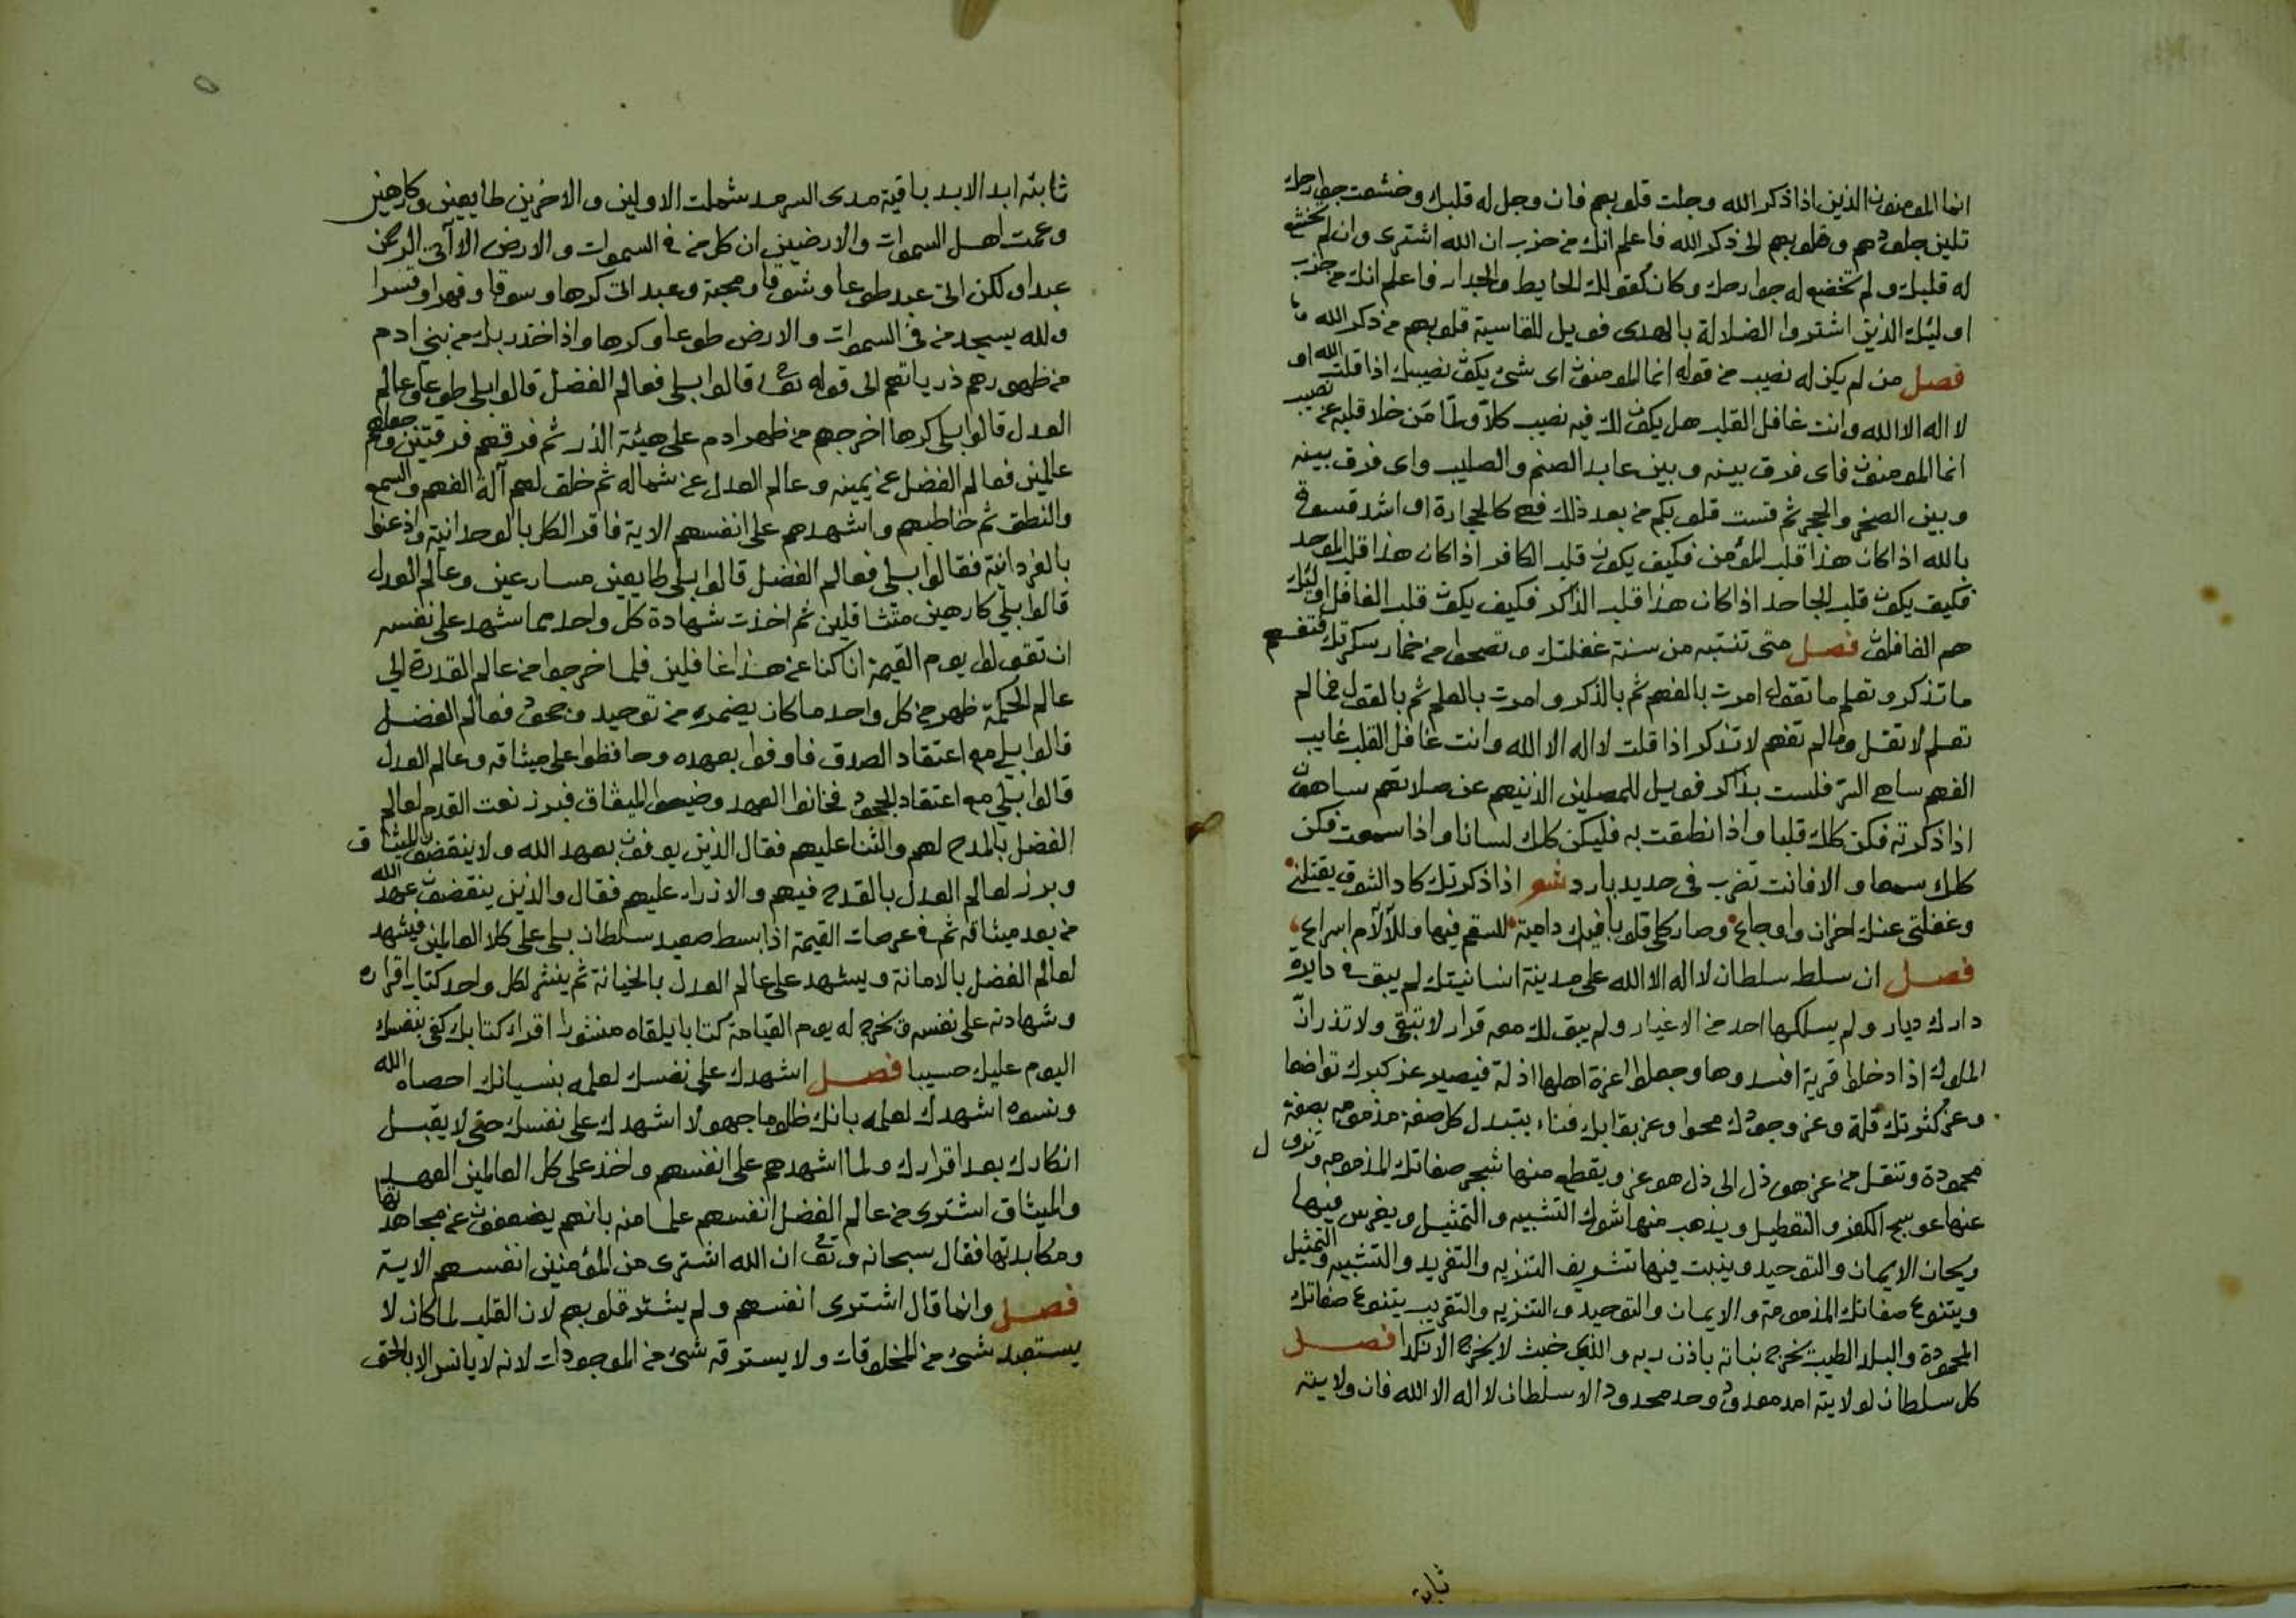 انما المومنون الذين اذا ذكر الله وجلت قلوبهم فان وجل له قلبك وخشعت جوارحك
تلين جلودهم وقلوبهم الى ذكر الله فاعلم انك من حزب ان الله اشترى وان لم يخشع
له قلبك ولم تخضع له جوارحك وكان كقولك الحايط والجدار فاعلم انك من حزب
اوليئك الذين اشتروا الضلالة بالهدى فويل للقاسية قلوبهم من ذكر الله
فصل من لم يكن له نصيب من قوله انما المومنون اى شئ يكون نصيبك اذا قلت الله او
لا اله الا الله وانت غافل القلب هل يكون لك فيه نصيب كلا ولما من خلا قلبه عن نصيب
انما المومنون فاى فرق بينه وبين عابد الصنم والصليب واى فرق بينه
وبين الصخر والحجر ثم قست قلوبكم من بعد ذلك فهى كالحجارة او اشد قسوة
بالله اذا كان هذا قلب المؤمن فكيف يكون قلب الكافر اذا كان هذا قلب الموحد
فكيف يكون قلب الجاحد اذا كان هذا قلب الذاكر فكيف يكون قلب الغافل اوليئك
هم الغافلون فصل متى تنتبه من سنة غفلتك وتصحوا من خمار سكرتك فتفهم
ما تذكر وتعلم ما تقول امرت بالفهم ثم بالذكر وامرت بالعلم ثم بالقول فما لم
تعلم لا تقل وما لم تفهم لا تذكر اذا قلت لا اله الا الله وانت غافل القلب غايب
الفهم ساهى السر فلست بذاكر فويل للمصلين الذينهم عن صلاتهم ساهون
اذا ذكرته فكن كلك قلبا واذا نطقت به فليكن كلك لسانا واذا سمعت فكن
كلك سمعا والا فانت تضرب فى حديد بارد شعر اذا ذكرتك كاد الشوق يقتلنى
وغفلتى عنك احزان واوجاع وصار كلى قلوبا فيك دامية للسقم فيها وللآلام اسراع
فصل ان سلط سلطان لا اله الا الله على مدينة انسانيتك لم يبق فى دايرة
دارك ديار ولم يسلكها احد من الاغيار ولم يبق لك معه قرار لا تبقى ولا تذر ان
الملوك اذا دخلوا قرية افسدوها وجعلوا اعزة اهلها اذلة فيصير عز كبرك تواضعا
وعز كثرتك قلة وعز وجودك محوا وعز بقايك فناء يتبدل كل صفة مذمومه بصفة
محمودة وتنقل من عز هو ذل الى ذل هو عز ويقطع منها شجر صفاتك المذمومه وتزول
عنها عوسج الكفر والتعطيل ويذهب منها شوك التشبيه والتمثيل ويغرس فيها
ريحان الايمان والتوحيد وينبت فيها تشريف التنزيه والتفريد والتشبيه والتمثيل
ويتنوع صفاتك المذمومة والايمان والتوحيد والتنزيه والتقريب يتنوع صفاتك
المحمودة والبلد الطيب يخرج نباته باذن ربه والذى خبث لا يخرج الا نكدا فصل
كل سلطان لولايته امد معدود وحد محدود الا سلطان لا اله الا الله فان ولايته
ثابتة
ثابته ابد الابد باقية مدى السرمد شملت الاولين والاخرين طايعين وكارهين
وعمت اهل السموات والارضين ان كل من فى السموات والارض الا آتى الرحمن
عبدا ولكن اتى عبد طوعا وشوقا ومحبة وعبد اتى كرها وسوقا وقهرا وقسرا
ولله يسجد من فى السموات والارض طوعا وكرها واذ اخذ ربك من بنى ادم
من ظهورهم ذرياتهم الى قوله تعالى قالوا بلى فعالم الفضل قالوا بلى طوعا وعالم
العدل قالوا بلى كرها اخرجهم من ظهر ادم على هيئة الذر ثم فرقهم فرقتين وجعلهم
عالمين فعالم الفضل عن يمينه وعالم العدل عن شماله ثم خلق لهم آلة الفهم والسمع
والنطق ثم خاطبهم واشهدهم على انفسهم الاية فاقر الكل بالوحدانية واذعنوا
بالفردانية فقالوا بلى فعالم الفضل قالوا بلى طايعين مسارعين وعالم العدل
قالوا بلى كارهين متثاقلين ثم اخذت شهادة كل واحد بما شهد على نفسه
ان تقولوا يوم القيمة انا كنا عن هذا غافلين فلما خرجوا من عالم القدرة الى
عالم الحكمة ظهر من كل واحد ما كان يضمره من توحيد وجحود فعالم الفضل
قالوا بلى مع اعتقاد الصدق فاوفوا بعهده وحافظوا على ميثاقه وعالم العدل
قالوا بلى مع اعتقاد الجحود فخانوا العهد وضيعوا الميثاق فبرز نعت القدم لعالم
الفضل بالمدح لهم والثنا عليهم فقال الذين يوفون بعهد الله ولا ينقضون الميثاق
وبرز لعالم العدل بالقدح فيهم والازراء عليهم فقال والذين ينقضون عهد الله
من بعد ميثاقه ثم فى عرصات القيمة اذا بسط صعيد سلطان بلى على كلا العالمين فيشهد
لعالم الفضل بالامانة ويشهد على عالم العدل بالخيانة ثم ينشر لكل واحد كتاب اقراره
وشهادته على نفسه ونخرج له يوم القيامة كتابا يلقاه منشورا اقراء كتابك كفى بنفسك
اليوم عليك حسيبا فصل اشهدك على نفسك لعلمه بنسيانك احصاه الله
ونسوه اشهدك لعلمه بانك ظلوما جهولا اشهدك على نفسك حتى لا يقبل
انكارك بعد اقرارك ولما اشهدهم على انفسهم واخذ على كل العالمين العهد
والميثاق اشترى من عالم الفضل انفسهم علما منه بانهم يضعفون عن مجاهدتها
ومكابدتها فقال سبحانه وتعالى ان الله اشترى من المؤمنين انفسهم الاية
فصل وانما قال اشترى انفسهم ولم يشتر قلوبهم لان القلب لما كان لا
يستعبد شئ من المخلوقات ولا يسترقه شئ من الموجودات لانه لا يانس الا بالحق